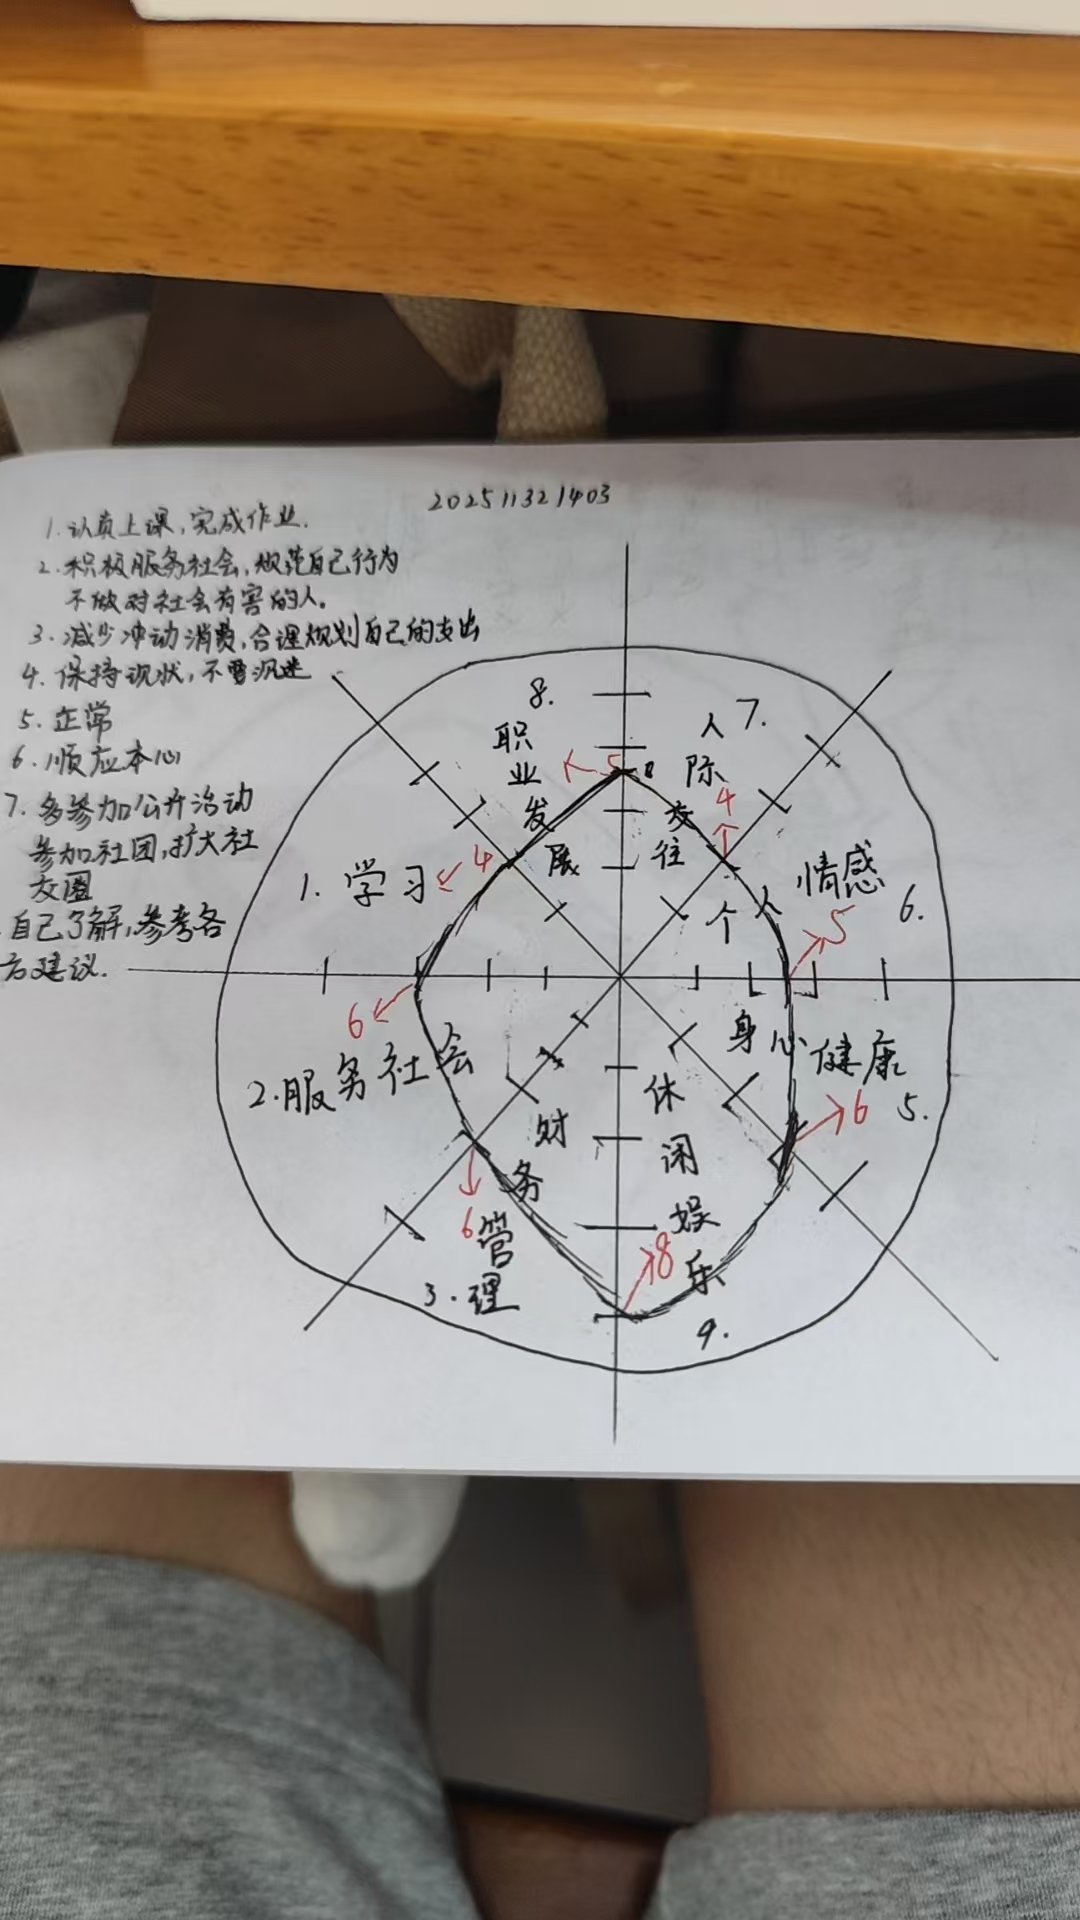 202511321403
1.认真上课,完成作业.
2.积极服务社会,规范自己行为
不做对社会有害的人。
3.减少冲动消费,合理规划自己的支出
4.保持现状,不要沉迷
5.正常
6.顺应本心
7.多参加公开活动
参加社团,扩大社
交圈
自己了解,参考各
方建议.
8.
职业发展
5
7.
人际交往
4
1.学习
4
个人情感
6.
5
6
2.服务社会
身心健康
5.
6
财务管理
3.
6
休闲娱乐
8